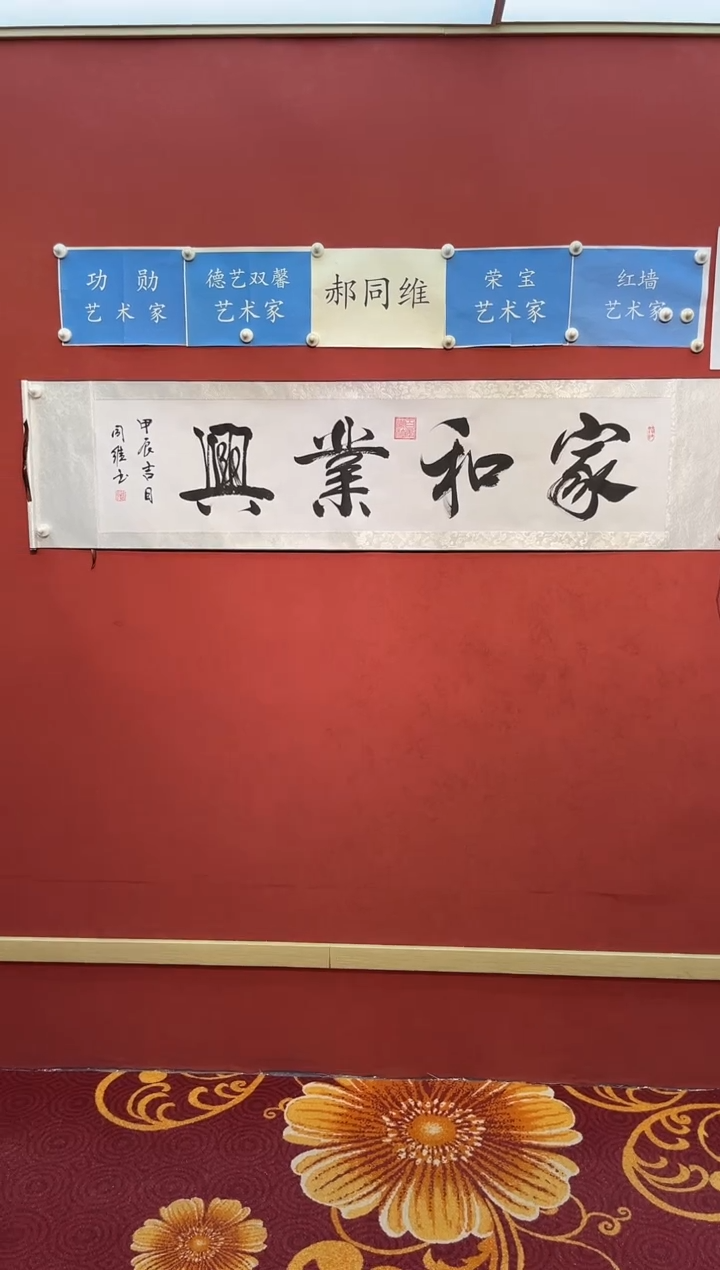 功勋
艺术家
德艺双馨
艺术家
郝同维
荣宝
艺术家
红墙
艺术家
家和業興
甲辰吉日
同维书